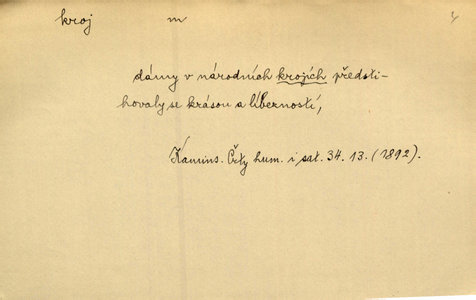 kroj m
dámy v národních krojích předsti-
hovaly se krásou a líbezností,
Kamins. Črty hum. i sat. 34. 13. (1892).